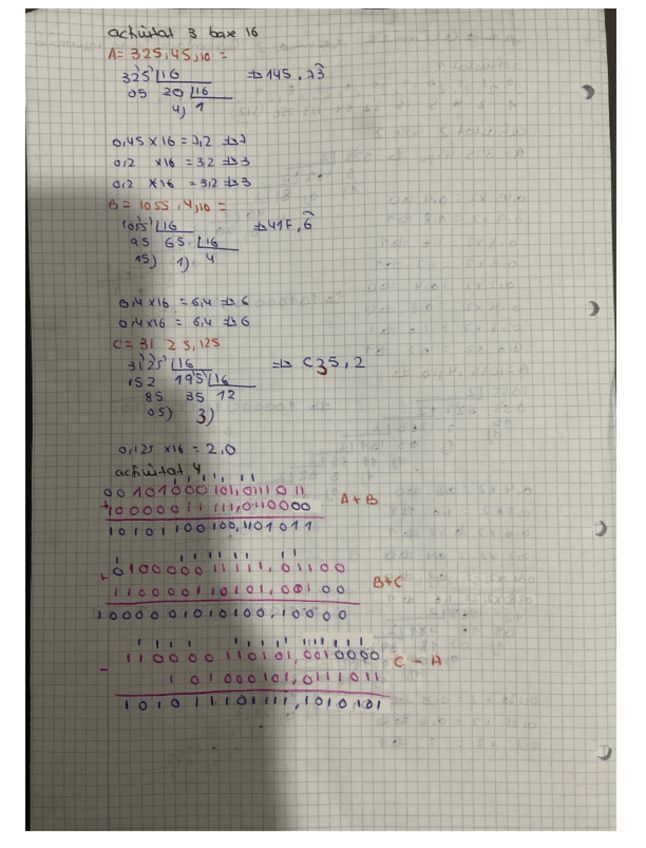 activitat 3 base 16
A= 325,45,10 =
325 16 => 145,73
05 20 16
4) 1
0,45 x 16 = 7,2 => 7
0,2 x16 = 3,2 => 3
0,2 x16 = 3,2 => 3
B = 1055,4,10 =
1055 16 => 41F,6
95 65 16
15) 1) 4
0,4 x 16 = 6,4 => 6
0,4 x 16 = 6,4 => 6
C = 31 25,125
3125 16 => C35,2
152 195 16
85 35 12
05) 3)
0,125 x16 = 2,0
activitat 4
00101000101,0111011
+10000011111,0110000 A+B
10101100100,1101011
+0100000 11111,01100 B+C
110000110101,00100
1000001010100,10000
110000110101,0010000 C - A
- 101000101,0111011
101011101111,1010101